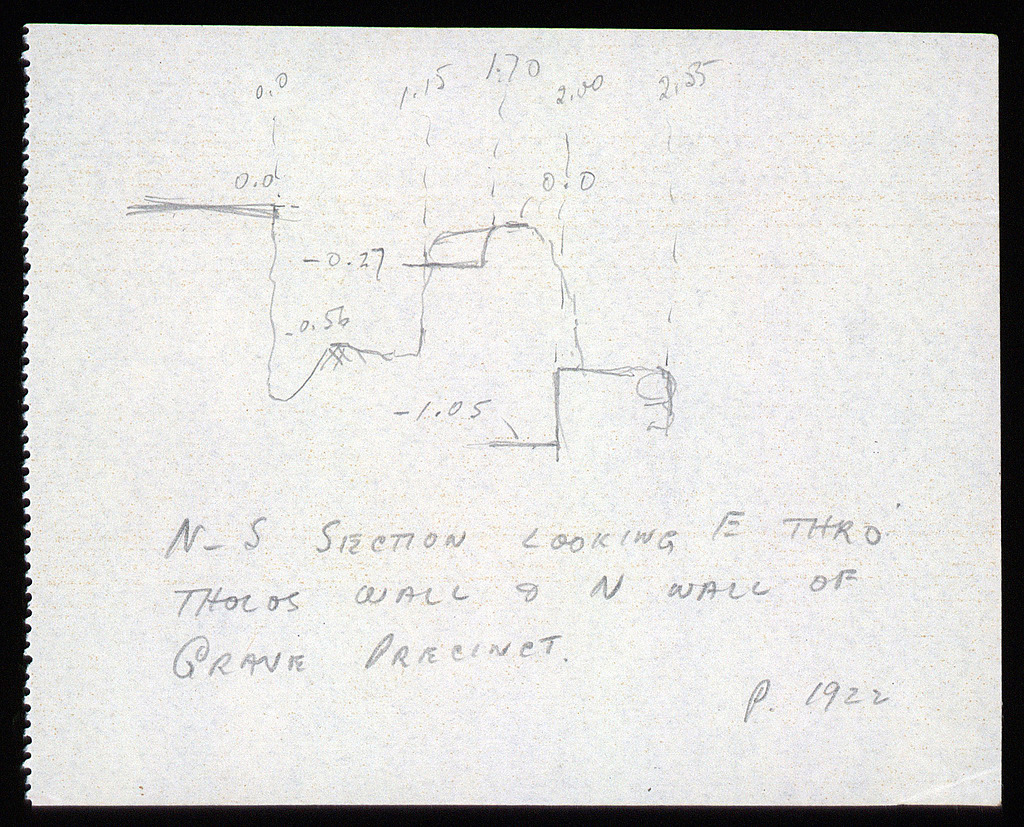 0.0 1.15 1.70 2.00 2.35
0.0 0.0
-0.27
-0.56
-1.05
N-S SECTION LOOKING E THRO'
THOLOS WALL & N WALL OF
GRAVE PRECINCT.
P. 1922